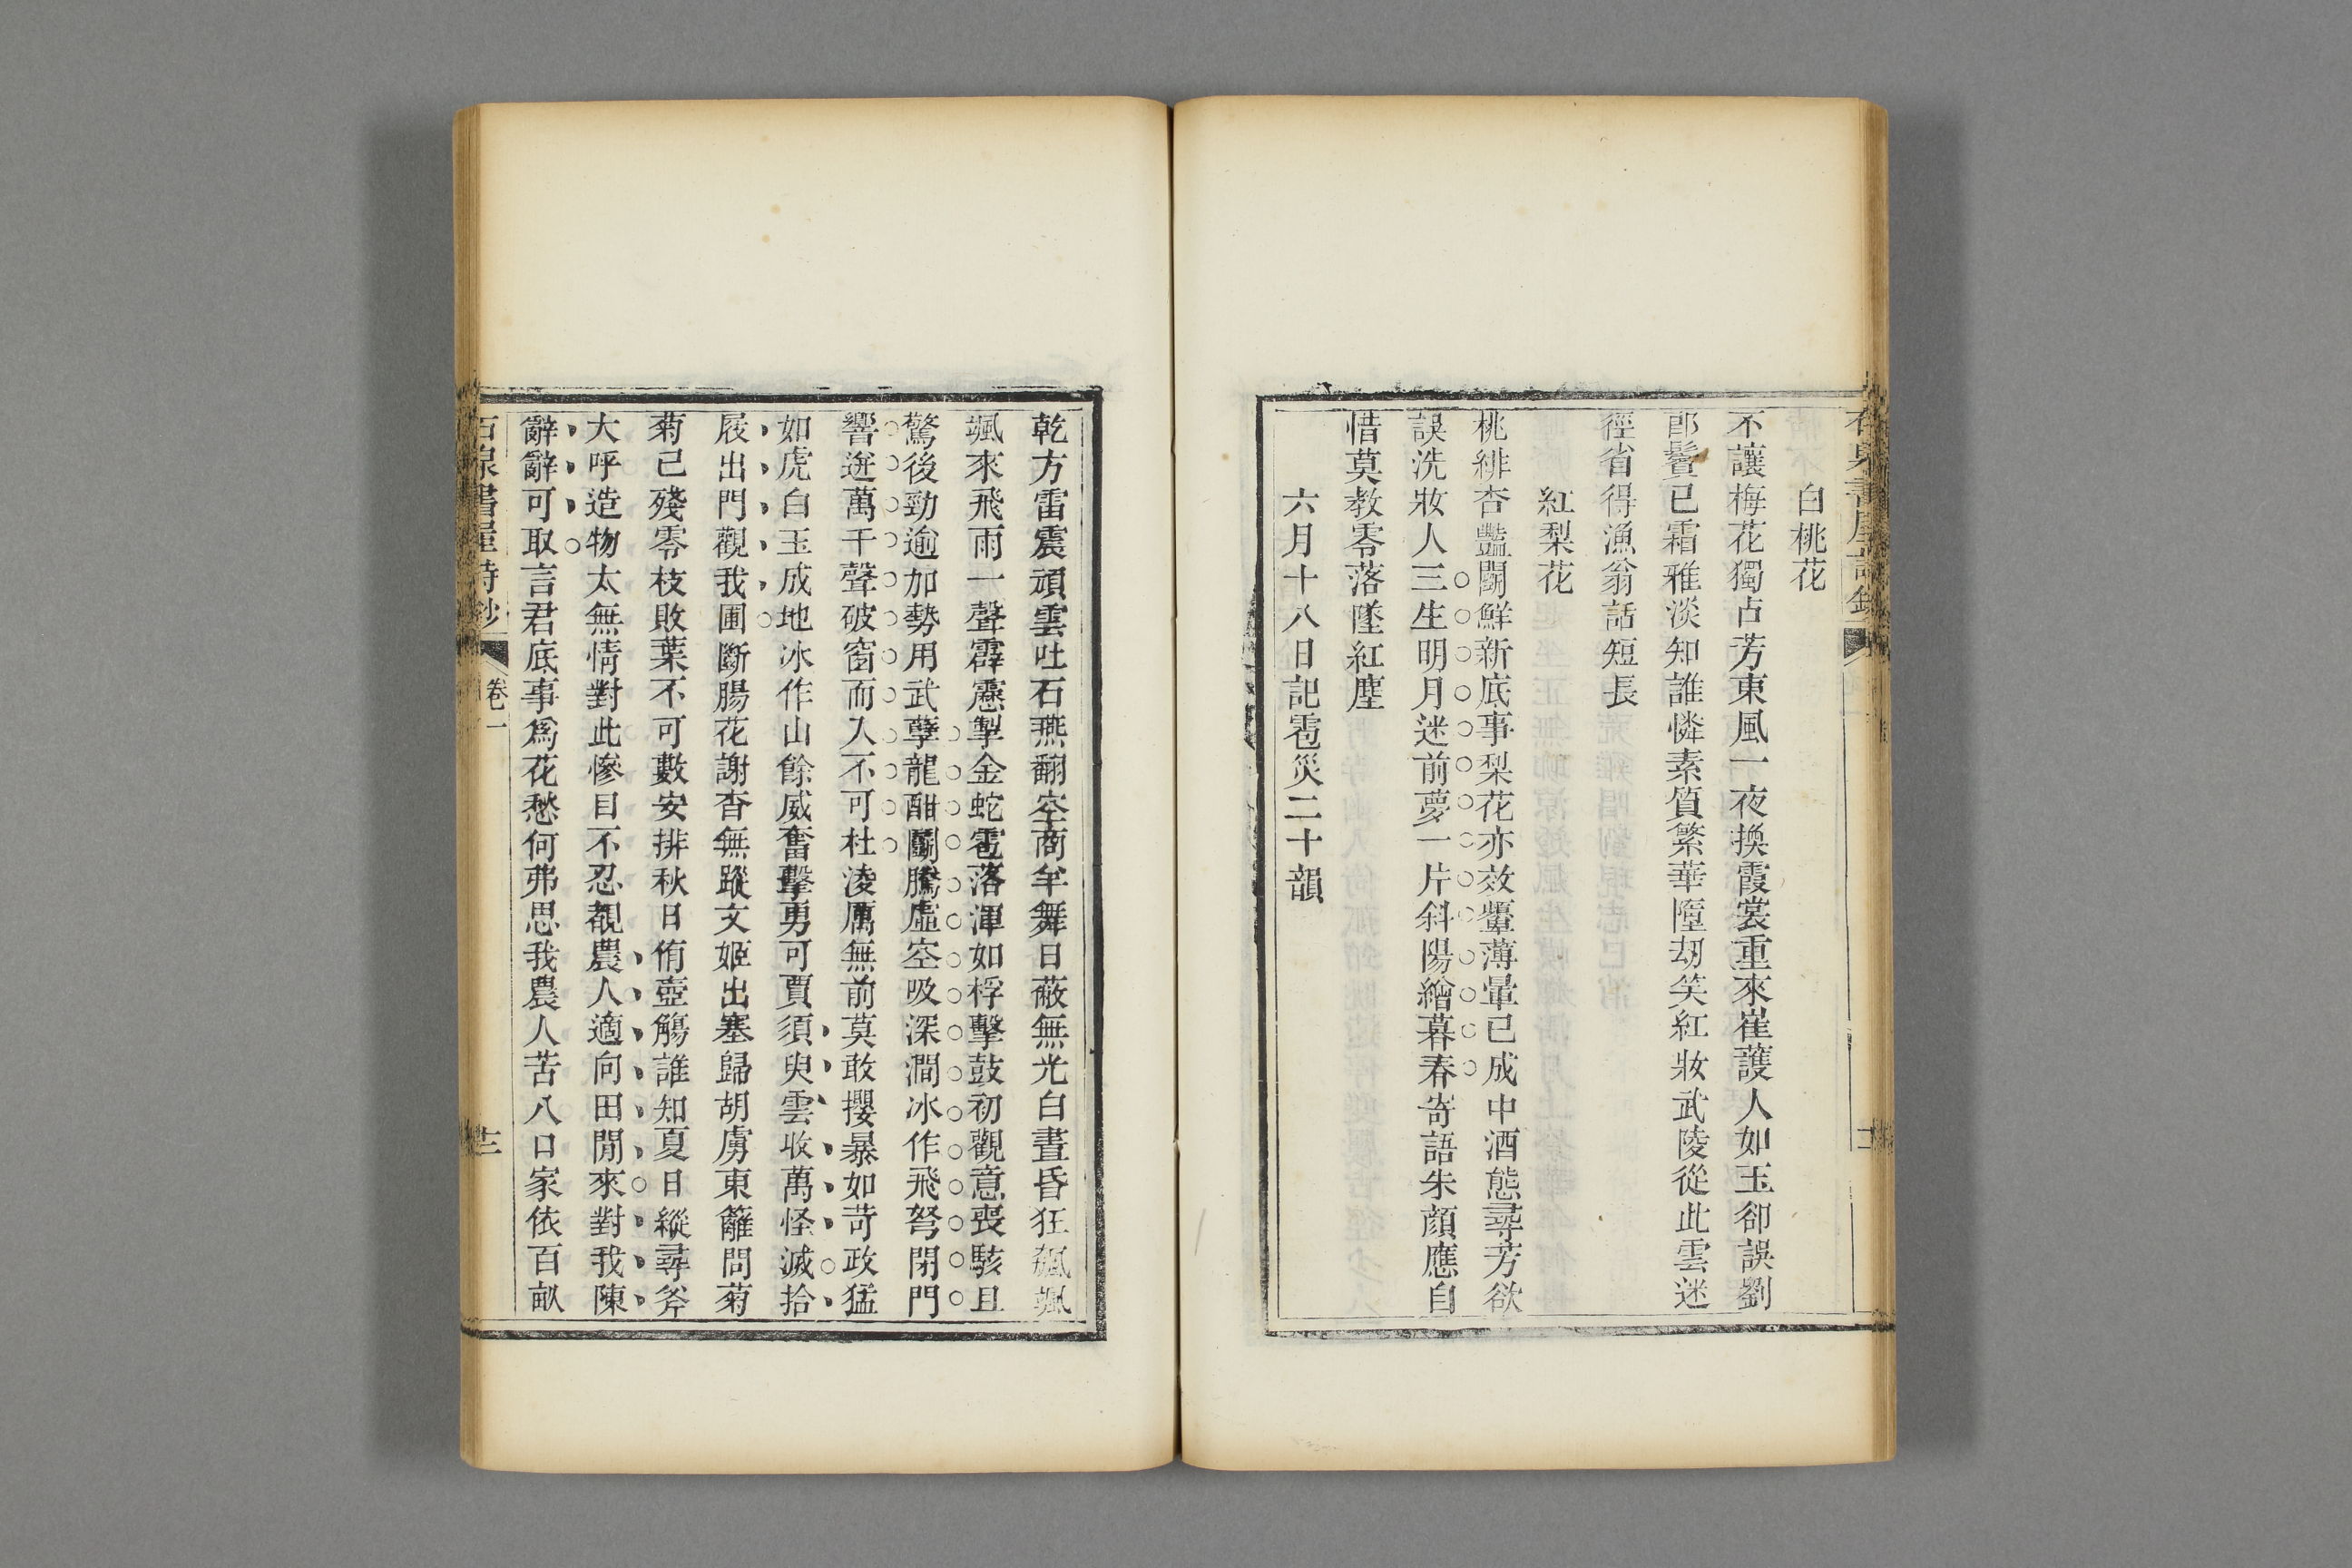 白桃花
不讓梅花獨占芳東風一夜換霞裳重來崔護人如玉卻誤劉
郎鬢已霜雅淡知誰憐素質繁華墮劫笑紅妝武陵從此雲迷
徑省得漁翁話短長
紅梨花
桃緋杏豔鬬鮮新底事梨花亦效顰薄暈已成中酒態尋芳欲
誤洗妝人三生明月迷前夢一片斜陽繪暮春寄語朱顏應自
惜莫教零落墜紅塵
六月十八日記雹災二十韻
乾方雷震頑雲吐石燕翻空商羊舞日蔽無光白晝昏狂飆颯
颯來飛雨一聲霹靂掣金蛇雹落渾如桴擊鼓初觀意喪駭且
驚後勁逾加勢用武孽龍酣鬬騰虛空吸深澗冰作飛弩閉門
響迸萬千聲破窗而入不可杜淩厲無前莫敢攖暴如苛政猛
如虎白玉成地冰作山餘威奮擊勇可賈須臾雲收萬怪滅拾
屐出門觀我圃斷腸花謝杳無蹤文姬出塞歸胡虜東籬問菊
菊已殘零枝敗葉不可數安排秋日侑壺觴誰知夏日縱尋斧
大呼造物太無情對此慘目不忍覩農人適向田間來對我陳
辭辭可取言君底事爲花愁何弗思我農人苦八口家依百畝
石泉書屋詩鈔 卷一 十二